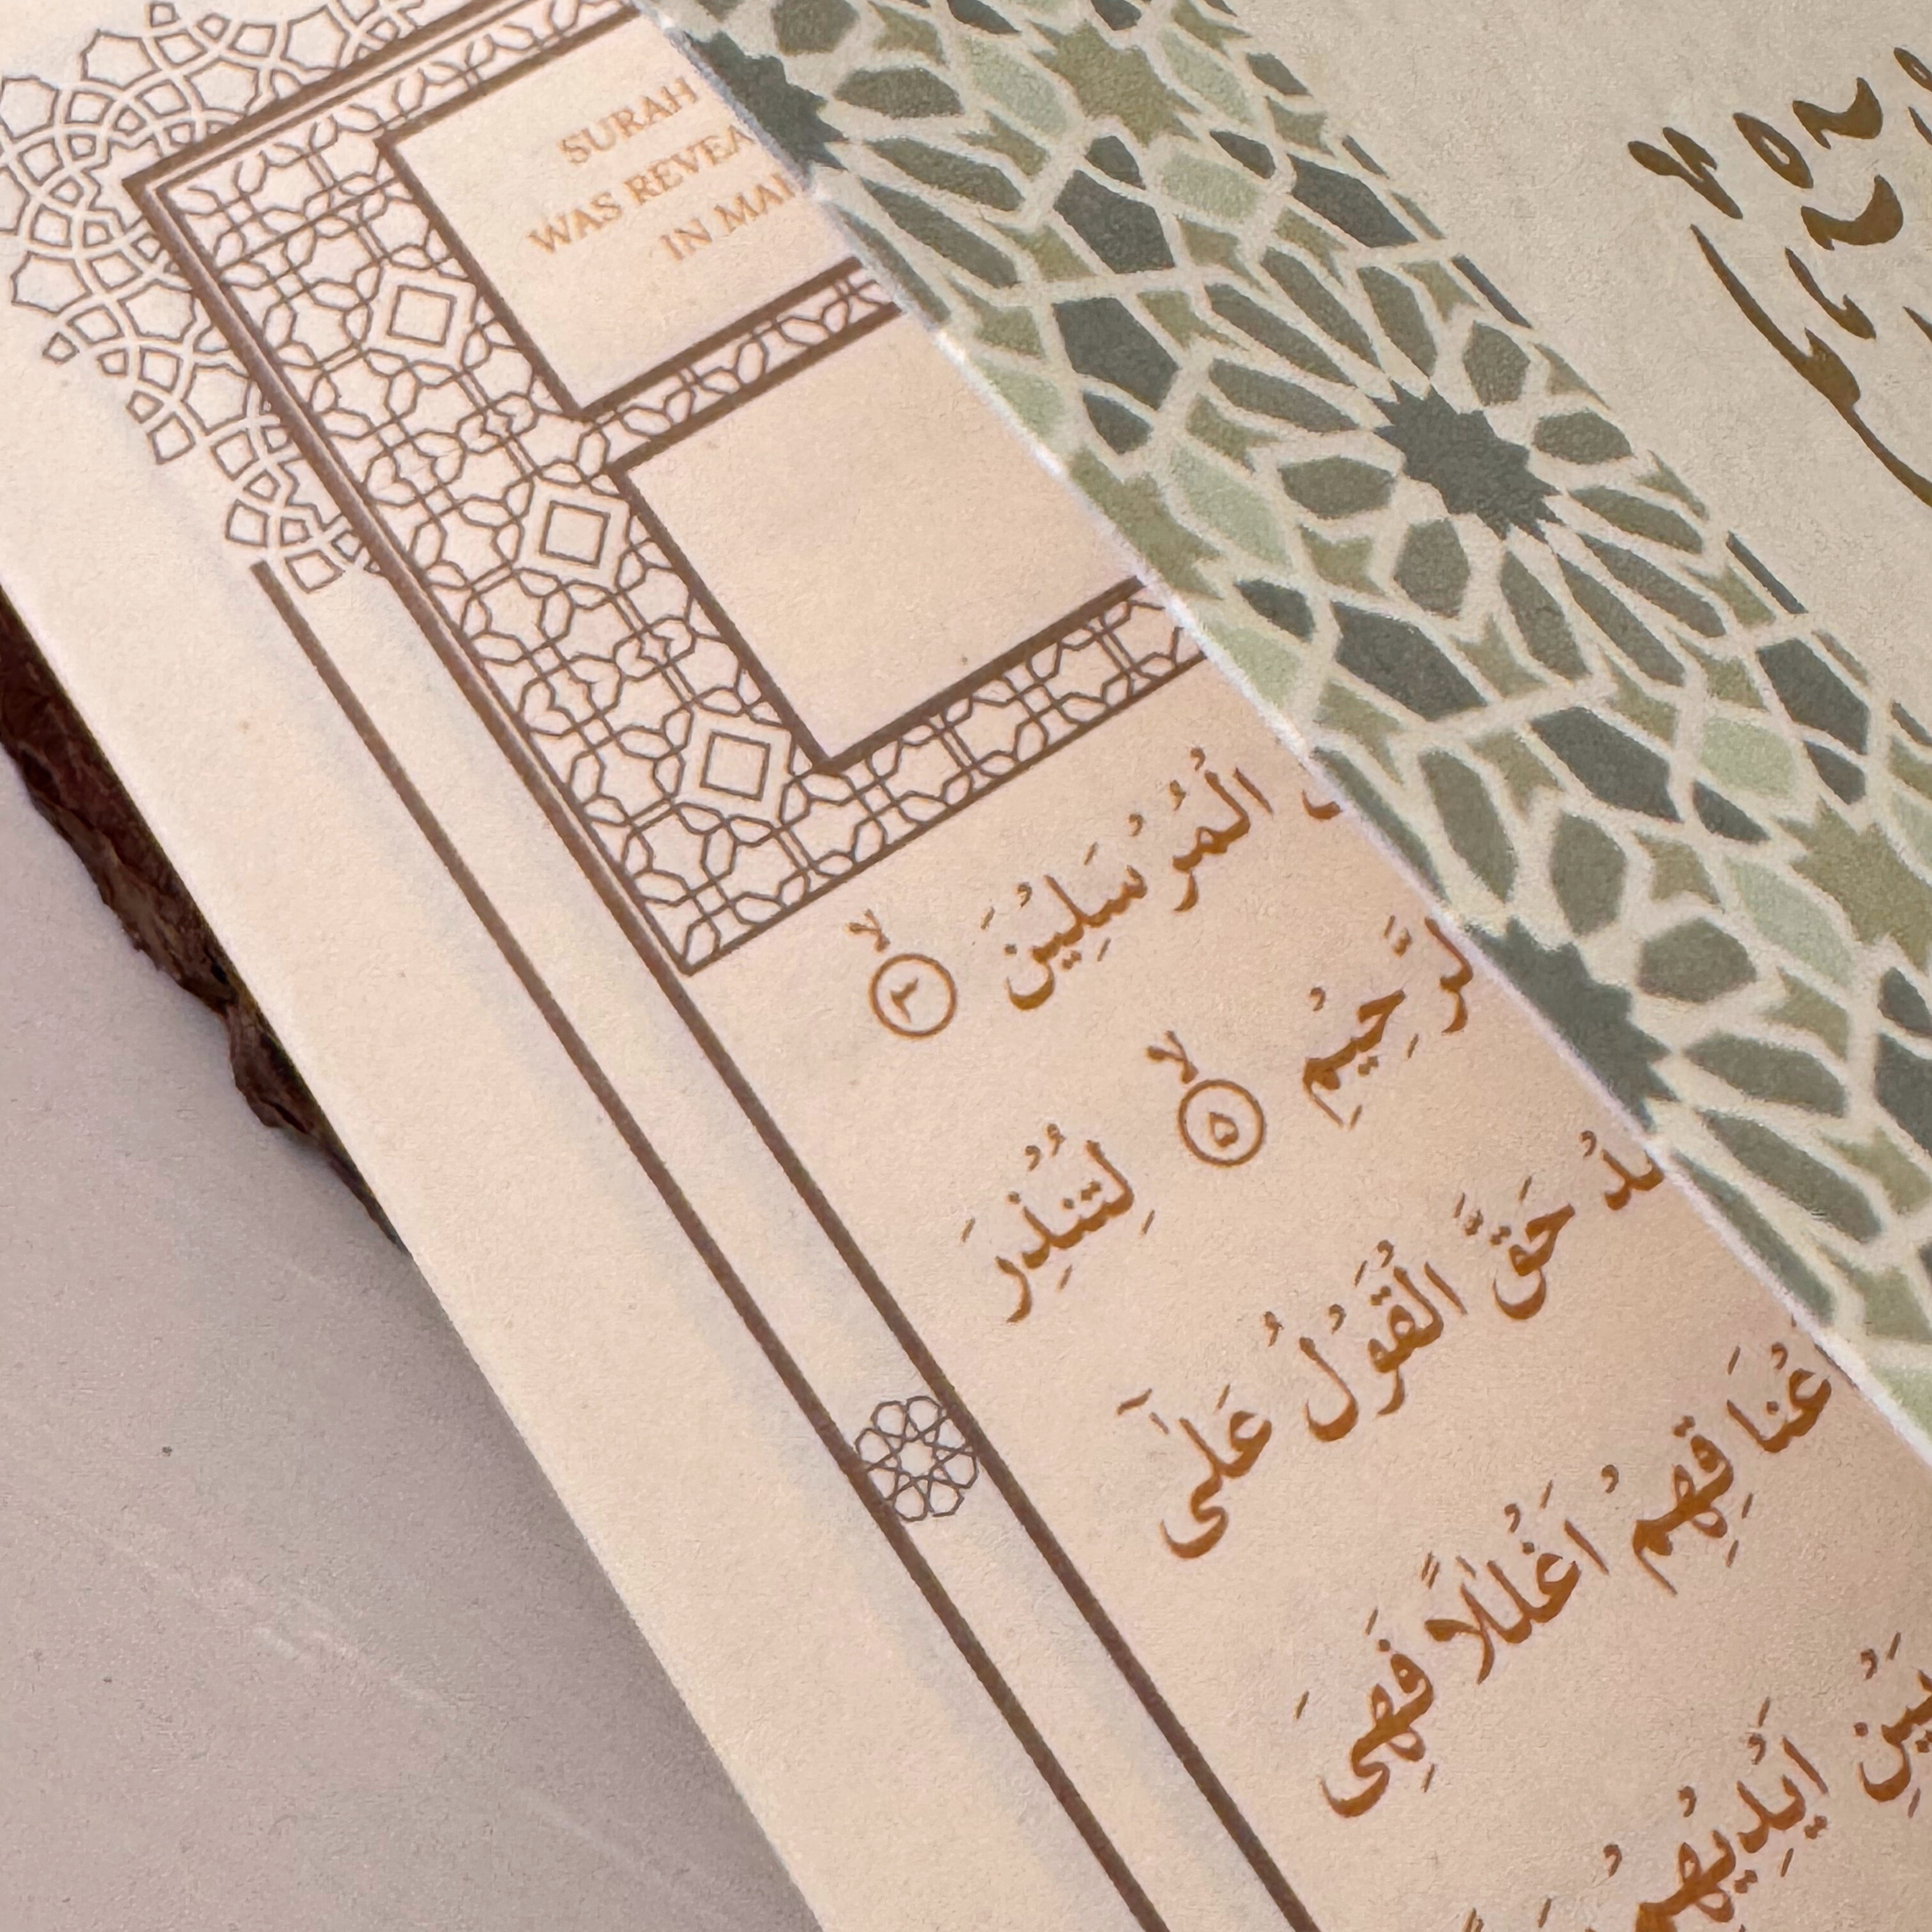 SURAH
WAS REVEA
IN MA
الْمُرْسَلِيْنَ ۳ لا
الرَّحِيْمِ ۵ لا لِتُنْذِرَ
حَقَّ الْقَوْلُ عَلٰٓى
فِهِمْ اَغْلٰلًا فَهِىَ
بَيْنِ اَيْدِيْهِمْ